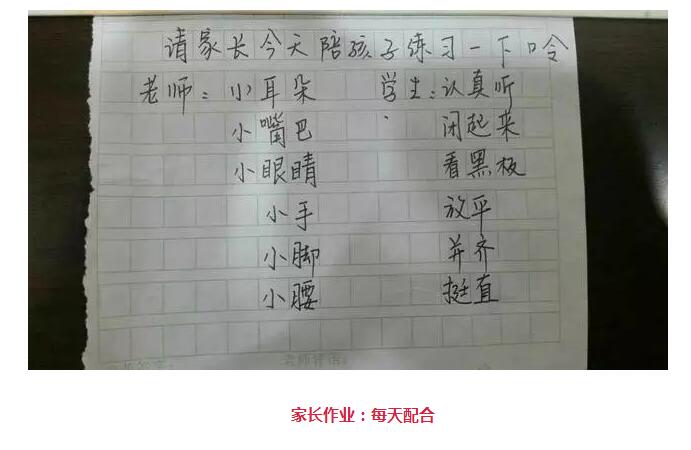 请家长今天陪孩子练习一下口令
老师：小耳朵 学生：认真听
小嘴巴 闭起来
小眼睛 看黑板
小手 放平
小脚 并齐
小腰 挺直
家长作业：每天配合